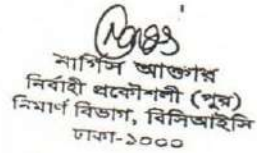 নার্গিস আক্তার
নির্বাহী প্রকৌশলী (পুর)
নির্মাণ বিভাগ, বিসিআইসি
ঢাকা-১০০০